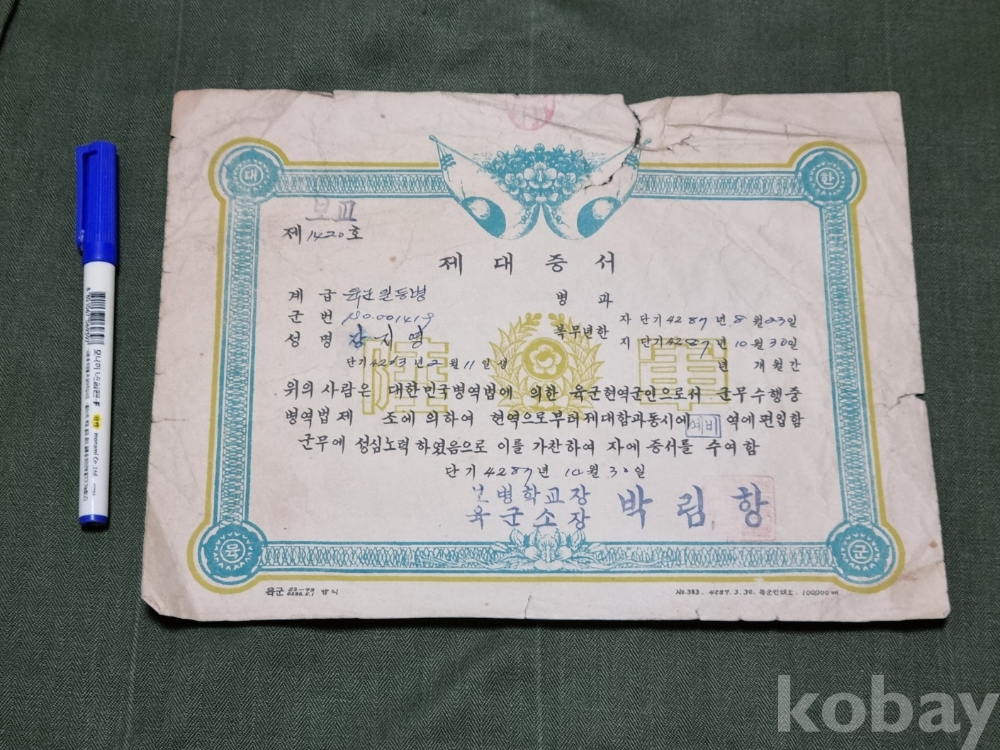 대 한
보교
제 1420 호
제 대 증 서
계 급 육군 일등병 병 과
군 번 자 단기 4287 년 8 월 23 일
성 명 지 영 복무연한 지 단기 4287 년 10 월 30 일
단기 월 11 일 생 년 개월간
陸 軍
위의 사람은 대한민국병역법에 의한 육군현역군인으로서 군무수행중
병역법 제 조에 의하여 현역으로부터 제대함과동시에 예비 역에 편입함
군무에 성심노력 하였음으로 이를 가찬하여 자에 증서를 수여함
단기 4287 년 10 월 30 일
병학교장
육군소장 박 림 항
육 군
육군 양식
No. 383. 4287. 3. 30. 육군인쇄소. 100,000 매
monami
kobay